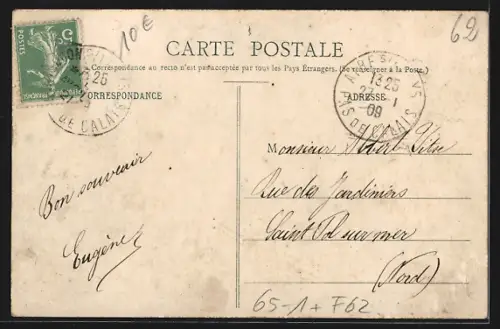 10€
62
CARTE POSTALE
La Correspondance au recto n'est pas acceptée par tous les Pays Étrangers. (Se renseigner à la Poste.)
CORRESPONDANCE
ADRESSE
POSTES
5c
DE CALAIS
13 25
09
PAS DE CALAIS
Monsieur
Rue des Jardiniers
Saint Pol sur mer
(Nord)
Bon souvenir
Eugène
65-1 + F62